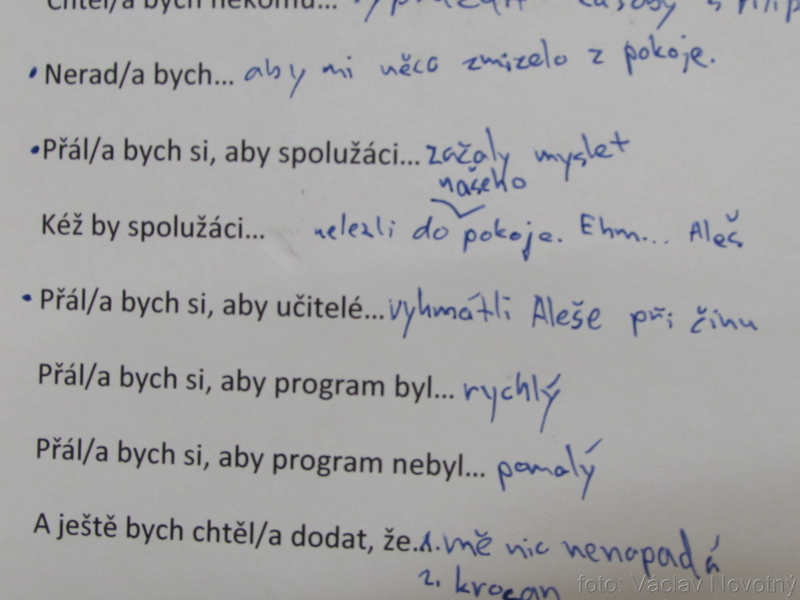 Chtěl/a bych někomu... s Filip
• Nerad/a bych... aby mi něco zmizelo z pokoje.
• Přál/a bych si, aby spolužáci... začaly myslet
našeho
Kéž by spolužáci... nelezli do pokoje. Ehm... Aleš
• Přál/a bych si, aby učitelé... vyhmátli Aleše při činu
Přál/a bych si, aby program byl... rychlý
Přál/a bych si, aby program nebyl... pomalý
A ještě bych chtěl/a dodat, že... 1. mě nic nenapadá
2. krocan
foto: Václav Novotný